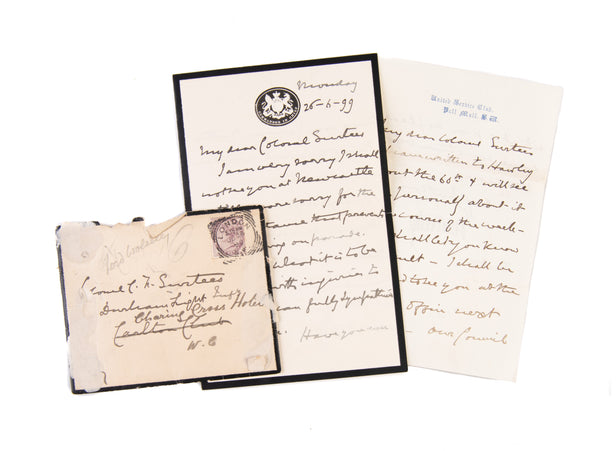 Monday
26-6-99
My dear Colonel Surtees
I am very sorry I shall
not see you at Newcastle
more sorry for the
prevent
on parade.
it is to be
with injuries to
can fully sympathise
Have you
United Service Club,
Pall Mall, S.W.
My dear Colonel Surtees
I have written to Hawley
about the 60th & will see
personally about it
course of the week-
shall let you know
result - I shall be
to see you at the
Office next
- our Council
LONDON
Lord Wolseley
Colonel C. F. Surtees
Durham Light Infy
Charing Cross Hotel
Carlton Club
W.C